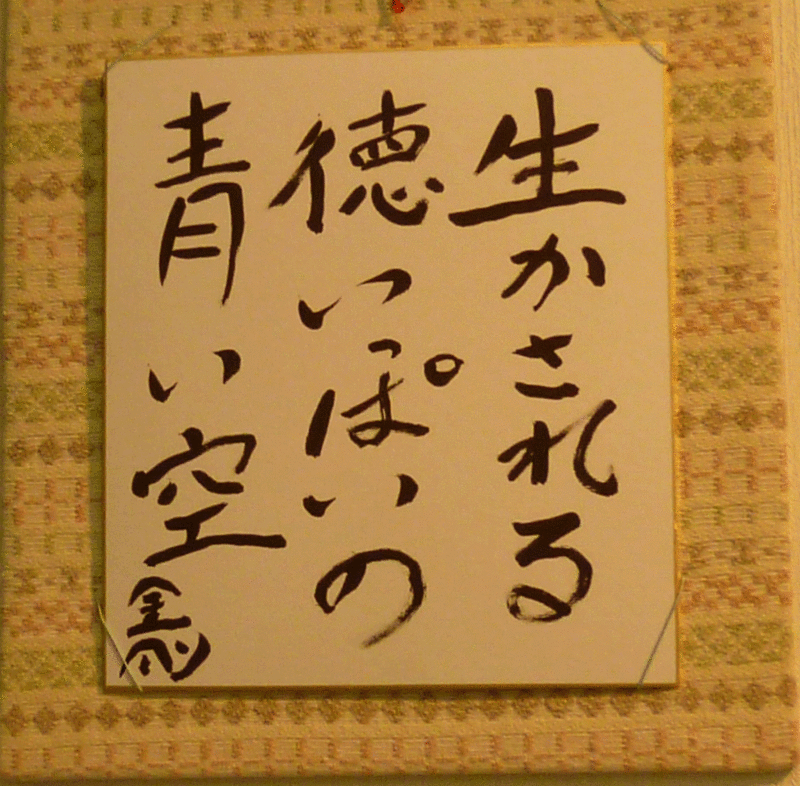 生かされる
徳いっぽいの
青い空